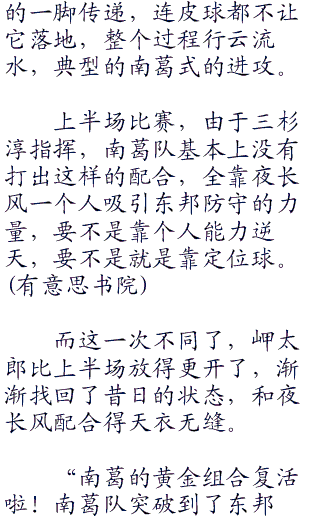 的一脚传递，连皮球都不让
它落地，整个过程行云流
水，典型的南葛式的进攻。
上半场比赛，由于三杉
淳指挥，南葛队基本上没有
打出这样的配合，全靠夜长
风一个人吸引东邦防守的力
量，要不是靠个人能力逆
天，要不是就是靠定位球。
(有意思书院)
而这一次不同了，岬太
郎比上半场放得更开了，渐
渐找回了昔日的状态，和夜
长风配合得天衣无缝。
“南葛的黄金组合复活
啦！南葛队突破到了东邦